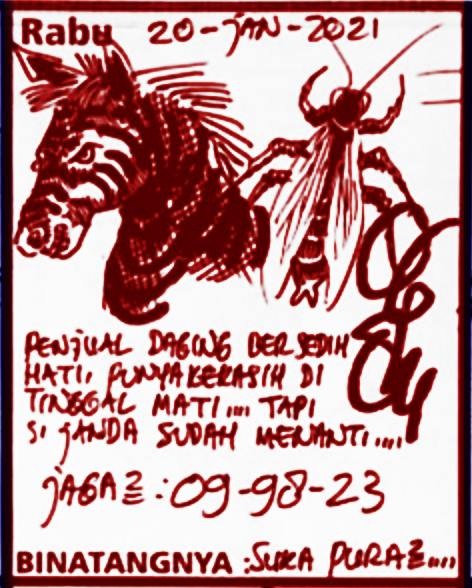 Rabu 20-JAN-2021
PENJUAL DAGING BERSEDIH
HATI, PUNYA KEKASIH DI
TINGGAL MATI.... TAPI
SI JANDA SUDAH MENANTI....
JAGA2 : 09-98-23
BINATANGNYA : SUKA PURA2....